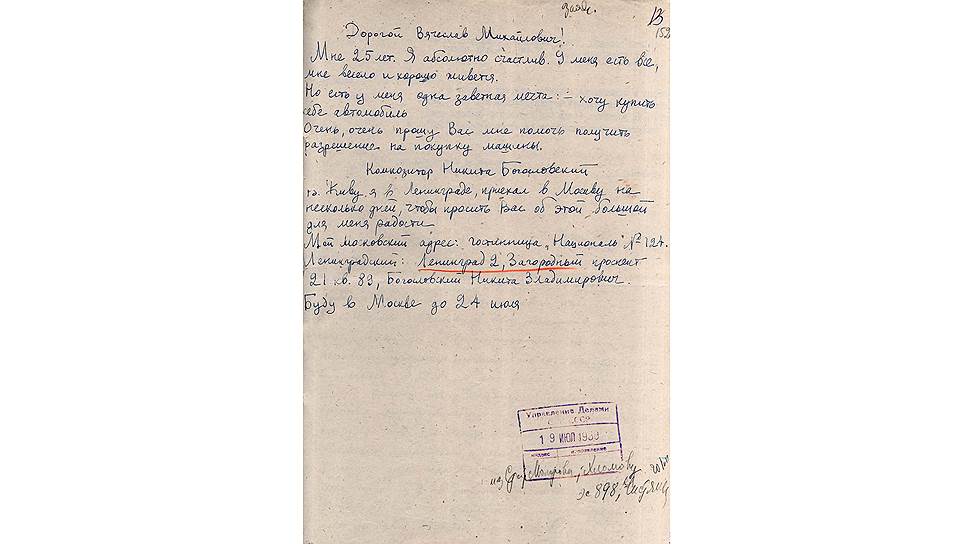 13
152
Дорогой Вячеслав Михайлович!
Мне 25 лет. Я абсолютно счастлив. У меня есть все,
мне весело и хорошо живется.
Но есть у меня одна заветная мечта: – хочу купить
себе автомобиль
Очень, очень прошу Вас мне помочь получить
разрешение на покупку машины.
Композитор Никита Богословский
Живу я в Ленинграде, приехал в Москву на
несколько дней, чтобы просить Вас об этой большой
для меня радости
Мой московский адрес: гостинница „Националь" № 124.
Ленинградский: Ленинград 2, Загородный проспект
21 кв. 83, Богословский Никита Владимирович.
Буду в Москве до 24 июля
Управление Делами
СССР
19 ИЮЛ 1939
индекс направление
из Молотова, Хломову
898,